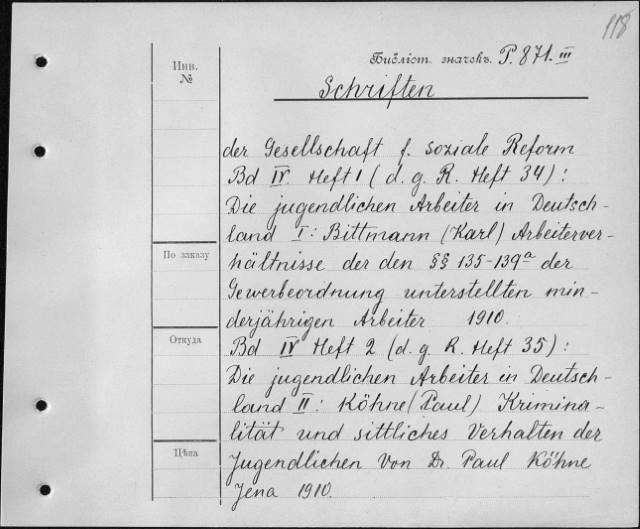 118
Инв.
№
Библіот. значекъ. P. 871. III
Schriften
der Gesellschaft f. soziale Reform
Bd IV. Heft 1 (d. g. R. Heft 34):
Die jugendlichen Arbeiter in Deutsch-
land I: Bittmann (Karl) Arbeiterver-
По заказу
hältnisse der den §§ 135-139a der
Gewerbeordnung unterstellten min-
derjährigen Arbeiter 1910.
Откуда
Bd IV Heft 2 (d. g. R. Heft 35):
Die jugendlichen Arbeiter in Deutsch-
land II: Köhne (Paul) Krimina-
lität und sittliches Verhalten der
Цѣна
Jugendlichen von Dr. Paul Köhne
Jena 1910.